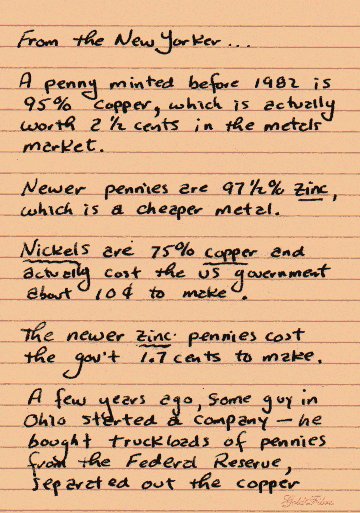 From the New Yorker...
A penny minted before 1982 is
95% copper, which is actually
worth 2 1/2 cents in the metals
market.
Newer pennies are 97 1/2% zinc,
which is a cheaper metal.
Nickels are 75% copper and
actually cost the US government
about 10¢ to make.
The newer zinc pennies cost
the gov't 1.7 cents to make.
A few years ago, some guy in
Ohio started a company — he
bought truckloads of pennies
from the Federal Reserve,
separated out the copper